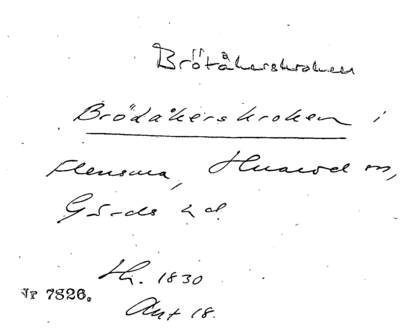 Brötåkerskroken
Brödåkerskroken i
Flensma, Huaröd sn,
Gärds hd.
Lh. 1830
Nr 7826.
Akt 18.